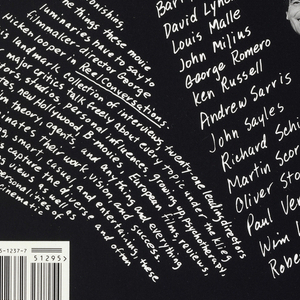 onishing,
the things these movie
luminaries have to say to
filmmaker/actor George
Hickenlooper in Reel Conversations.
is landmark collection of interviews, twenty-one leading directors
major critics talk freely about every topic under the klieg
studios, personal influences, growing up, psychotherapy,
new Hollywood, B movies, European films, reviews,
theory, agents, and anything and everything
their work, vision and success.
casual and entertaining, these
capture the diverse and often
personalities of
51237-7
51295>
Barr
David Lynch
Louis Malle
John Milius
George Romero
Ken Russell
Andrew Sarris
John Sayles
Richard Schi
Martin Scor
Oliver Sto
Paul Ver
Wim W
Robe